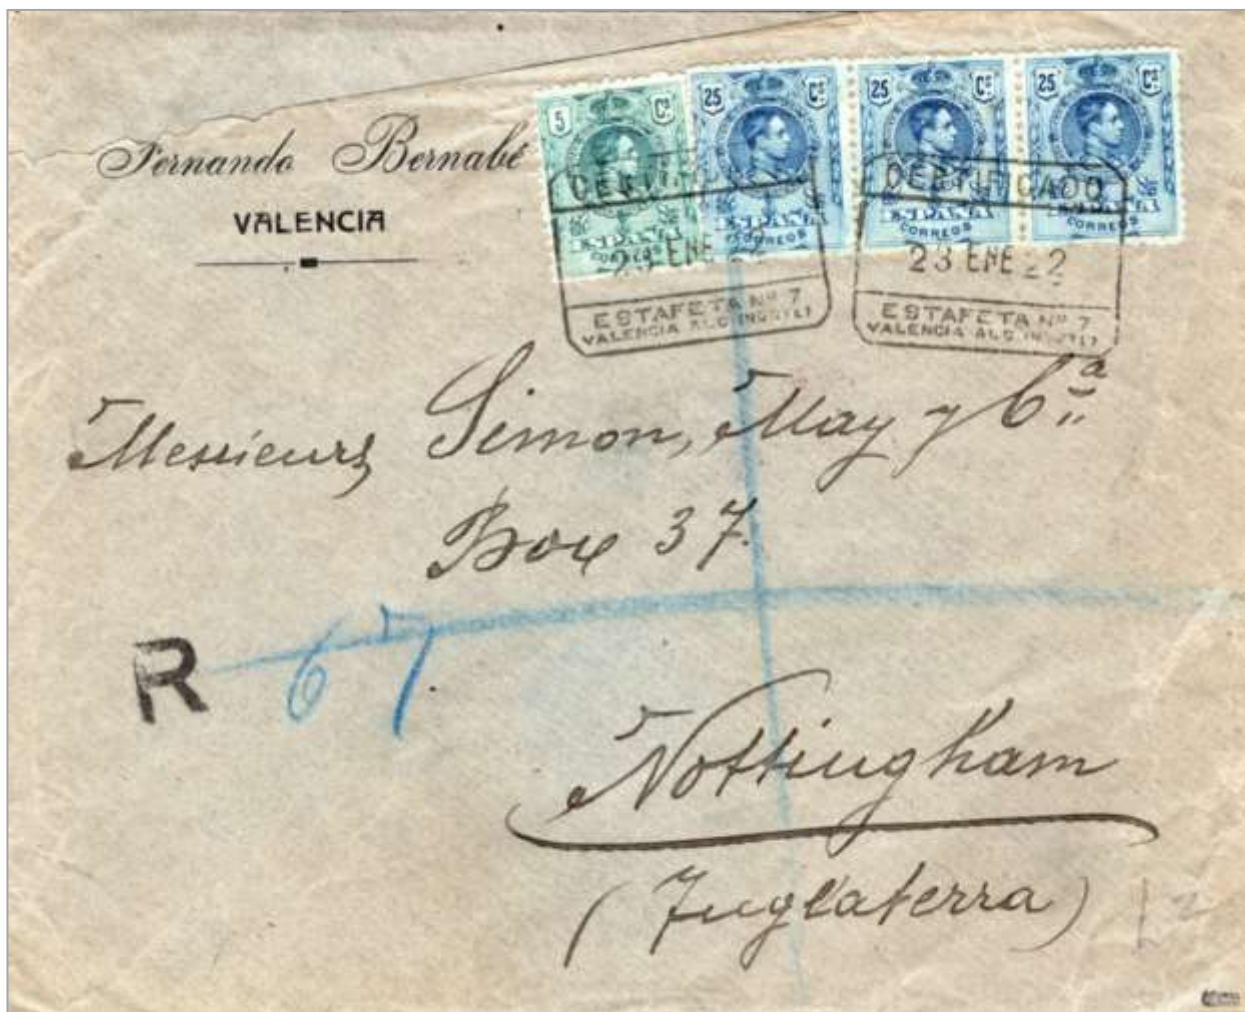 Fernando Bernabé
VALENCIA
5 Cs
25 Cs
25 Cs
25 Cs
ESPAÑA
CORREOS
ESPAÑA
CORREOS
ESPAÑA
CORREOS
ESPAÑA
CORREOS
CERTIFICADO
23 ENE 22
ESTAFETA Nº 7
VALENCIA
CERTIFICADO
23 ENE 22
ESTAFETA Nº 7
VALENCIA
Messieurs Simon, May y Cª
Box 37.
R 67
Nottingham
(Inglaterra)